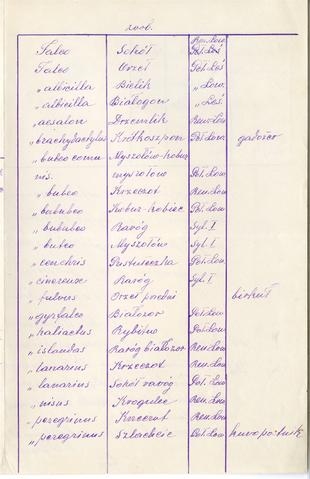 Ren. Low.
Falco Sokół Pół. Łoś
Falco Orzeł Pół. Łoś
„ albicilla Bielik „ Low.
„ albicilla Białogon „ Łoś.
„ aesalon Drzemlik Ren. Low
„ brachydactylus Krótkoszpon Pół. Low. gadożer
„ buteo commu Myszołów-kobuz
nis. myszołów Pół. Low.
„ buteo Krzeczot Ren. Low.
„ bubuteo Kobuz-kobiec Pół. Low.
„ bubuteo Raróg Syl. I
„ buteo Myszołów Syl. I.
„ cenchris Pustułeczka Pół. Low.
„ cinereus Raróg Syl. I
„ fulvus Orzeł przedni birkut
„ gyrfalco Białozor Pół. Low.
„ haliaetus Rybitw Pół. Low.
„ islandus Raróg białozor Ren. Low.
„ lanarius Krzeczot Ren. Low.
„ lanarius Sokół raróg Pół. Low.
„ nisus Krogulec Ren. Low.
„ peregrinus Ren. Low
„ peregrinus Szlachcic Pół. Low.